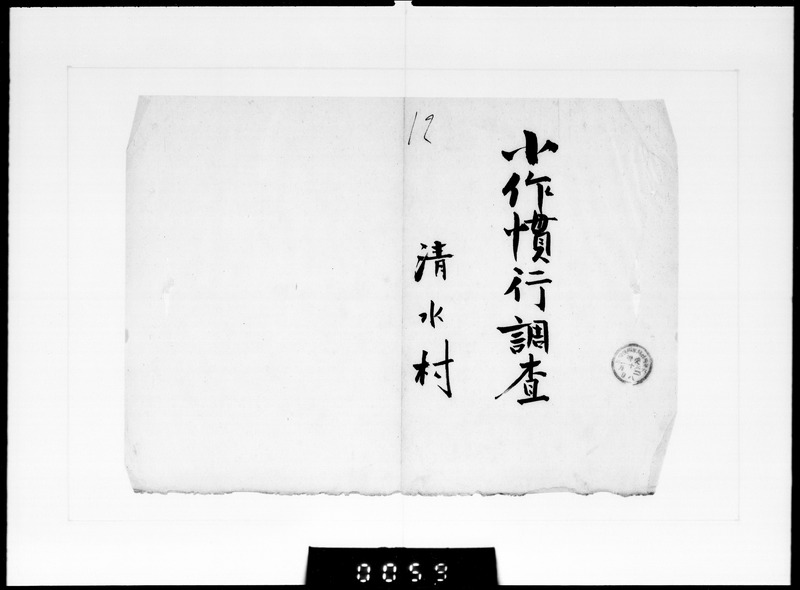 小作慣行調査
12
清水村
0059